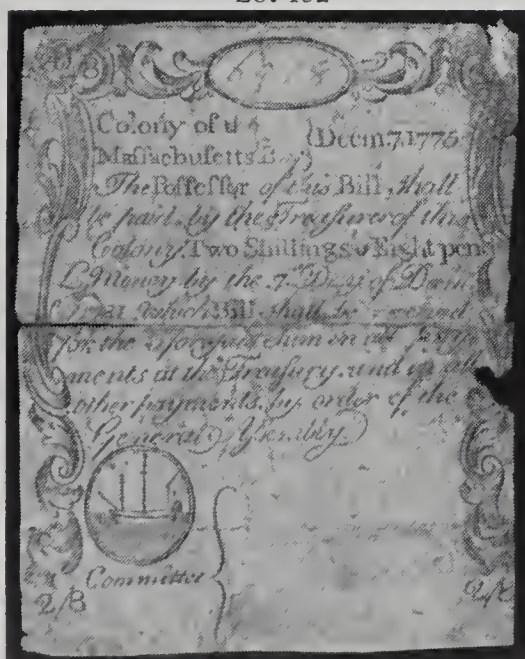 2/8
Colony of the
Massachusetts Bay
Decm. 7. 1775
The Possessor of this Bill, shall
be paid, by the Treasurer of this
Colony, Two Shillings & Eight pen
L. Money by the 7.th Day of Decm.
1781, which Bill shall be received
for the aforesaid sum in all pay-
ments at the Treasury, and in all
other payments by order of the
General Assembly
Committee
2/8
2/8